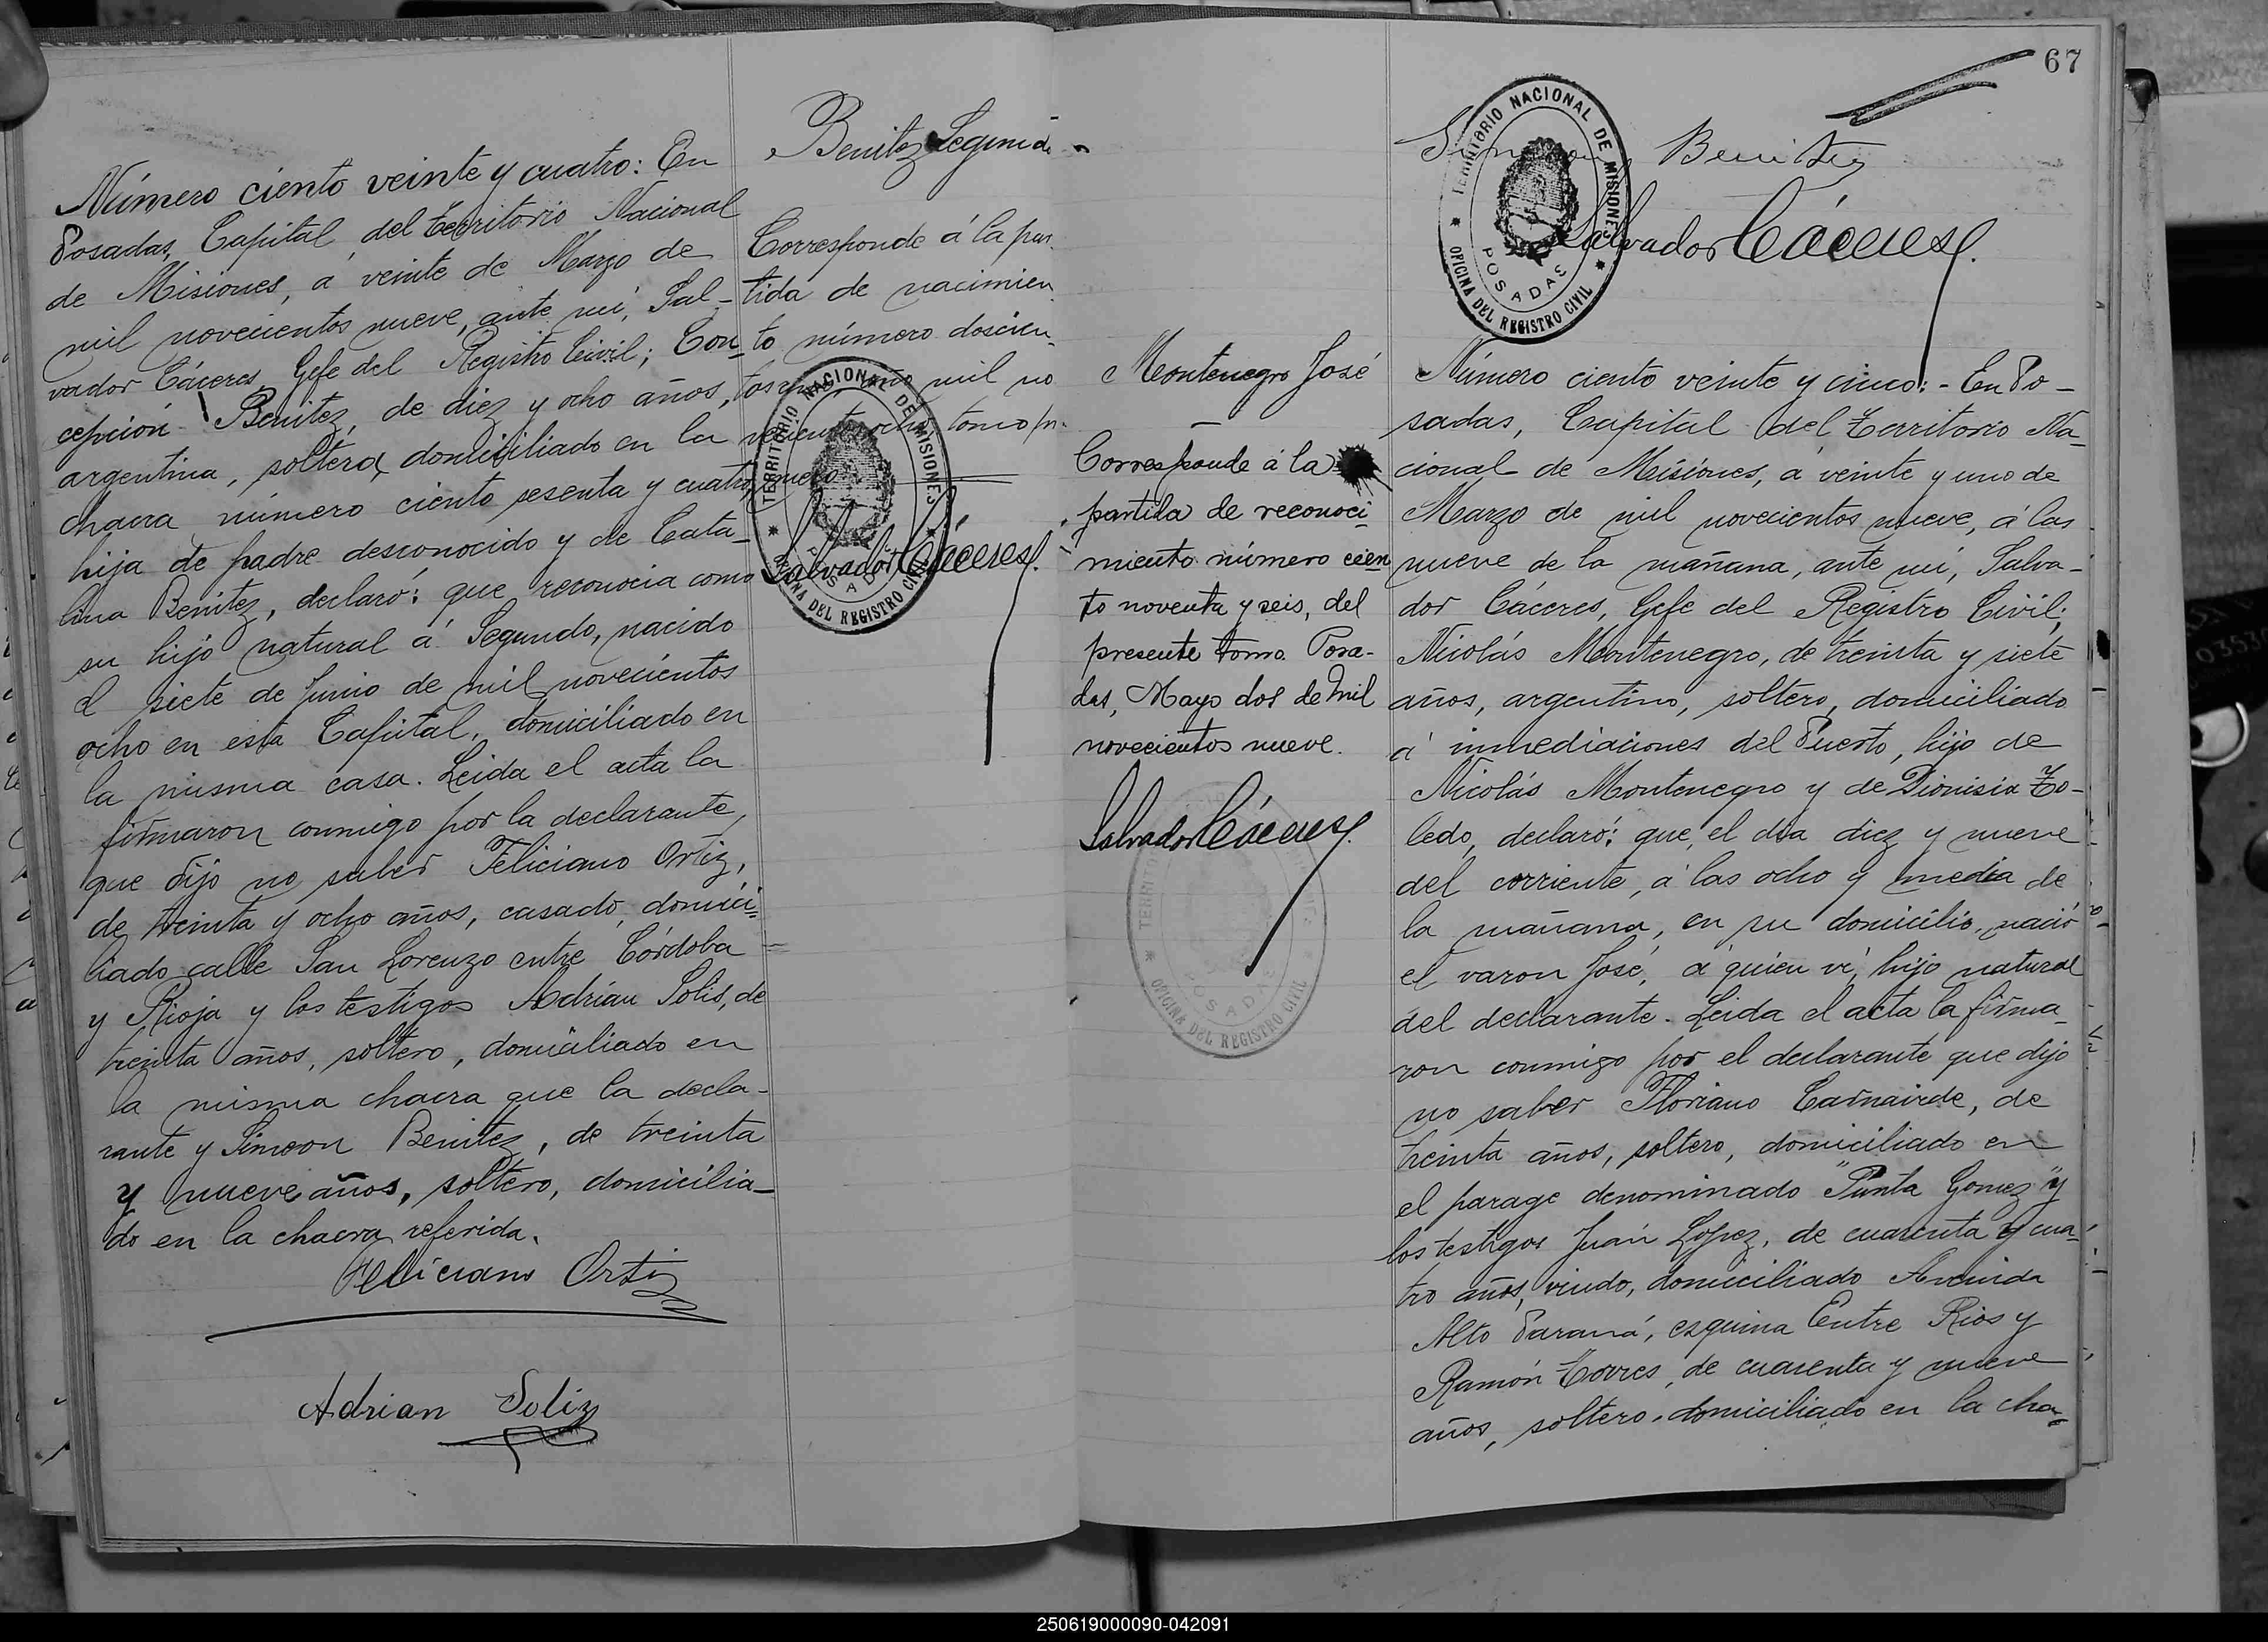 Benitez Segundo
Número ciento veinte y cuatro: En
Posadas, Capital del Territorio Nacional
de Misiones, á veinte de Marzo de
mil novecientos nueve, ante mí, Sal-
vador Cáceres, Gefe del Registro Civil; Con-
cepción Benitez, de diez y ocho años,
argentina, soltera, domiciliado en la
chacra número ciento sesenta y cuatro,
hija de padre desconocido y de Cata-
lina Benitez, declaró: que reconocia como
su hijo natural á Segundo, nacido
el siete de Junio de mil novecientos
ocho en esta Capital, domiciliado en
la misma casa. Leida el acta la
firmaron conmigo por la declarante,
que dijo no saber Feliciano Ortiz,
de treinta y ocho años, casado, domici-
liado calle San Lorenzo entre Córdoba
y Rioja y los testigos Adrian Solis, de
treinta años, soltero, domiciliado en
la misma chacra que la decla-
rante y Simeon Benitez, de treinta
y nueve años, soltero, domicilia-
do en la chacra referida.
Feliciano Ortiz
Adrian Soliz
Corresponde á la par-
tida de nacimien-
to número doscien-
mil no
tomo pri-
mero
Salvador Cáceres
TERRITORIO NACIONAL DE MISIONES
POSADAS
OFICINA DEL REGISTRO CIVIL
67
Benitez
Salvador Cáceres
TERRITORIO NACIONAL DE MISIONES
POSADAS
OFICINA DEL REGISTRO CIVIL
Montenegro José
Corresponde á la
partida de reconoci-
miento número cien-
to noventa y seis, del
presente tomo. Posa-
das, Mayo dos de mil
novecientos nueve.
Salvador Cáceres
POSADAS
OFICINA DEL REGISTRO CIVIL
Número ciento veinte y cinco: - En Po-
sadas, Capital del Territorio Na-
cional de Misiones, á veinte y uno de
Marzo de mil novecientos nueve, á las
nueve de la mañana, ante mí, Salva-
dor Cáceres, Gefe del Registro Civil;
Nicolás Montenegro, de treinta y siete
años, argentino, soltero, domiciliado
á inmediaciones del Puerto, hijo de
Nicolás Montenegro y de Dionisia To-
ledo, declaró: que, el dia diez y nueve
del corriente, á las ocho y media de
la mañana, en su domicilio, nació
el varon José, á quien vi, hijo natural
del declarante. Leida el acta la firma-
ron conmigo por el declarante que dijo
no saber Floriano de
treinta años, soltero, domiciliado en
el parage denominado "Punta Gomez" y
los testigos Juán Lopez, de cuarenta y cua-
tro años, viudo, domiciliado Avenida
Alto Paraná, esquina Entre Rios y
Ramón Torres, de cuarenta y nueve
años, soltero, domiciliado en la cha-
250619000090-042091